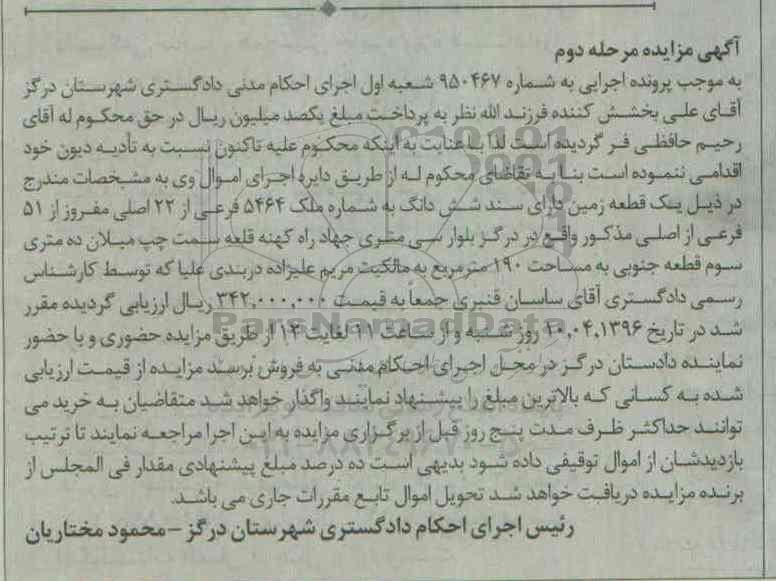 آگهی مزایده مرحله دوم
به موجب پرونده اجرایی به شماره ۹۵۰۴۶۷ شعبه اول اجرای احکام مدنی دادگستری شهرستان درگز
آقای علی بخشش کننده فرزند الله نظر به پرداخت مبلغ یکصد میلیون ریال در حق محکوم له آقای
رحیم حافظی فر گردیده است لذا با عنایت به اینکه محکوم علیه تاکنون نسبت به تأدیه دیون خود
اقدامی ننموده است بنا به تقاضای محکوم له از طریق دایره اجرای اموال وی به مشخصات مندرج
در ذیل یک قطعه زمین دارای سند شش دانگ به شماره ملک ۵۴۶۴ فرعی از ۲۲ اصلی مفروز از ۵۱
فرعی از اصلی مذکور واقع در درگز بلوار سی متری جهاد راه کهنه قلعه سمت چپ میلان ده متری
سوم قطعه جنوبی به مساحت ۱۹۰ مترمربع به مالکیت مریم علیزاده دربندی علیا که توسط کارشناس
رسمی دادگستری آقای ساسان قنبری جمعاً به قیمت ۳۴۲,۰۰۰,۰۰۰ ریال ارزیابی گردیده مقرر
شد در تاریخ ۱۰,۰۴,۱۳۹۶ روز شنبه و از ساعت ۱۱ لغایت ۱۲ از طریق مزایده حضوری و با حضور
نماینده دادستان درگز در محل اجرای احکام مدنی به فروش برسد مزایده از قیمت ارزیابی
شده به کسانی که بالاترین مبلغ را پیشنهاد نمایند واگذار خواهد شد متقاضیان به خرید می
توانند حداکثر ظرف مدت پنج روز قبل از برگزاری مزایده به این اجرا مراجعه نمایند تا ترتیب
بازدیدشان از اموال توقیفی داده شود بدیهی است ده درصد مبلغ پیشنهادی مقدار فی المجلس از
برنده مزایده دریافت خواهد شد تحویل اموال تابع مقررات جاری می باشد.
رئیس اجرای احکام دادگستری شهرستان درگز – محمود مختاریان
ParsNamadData